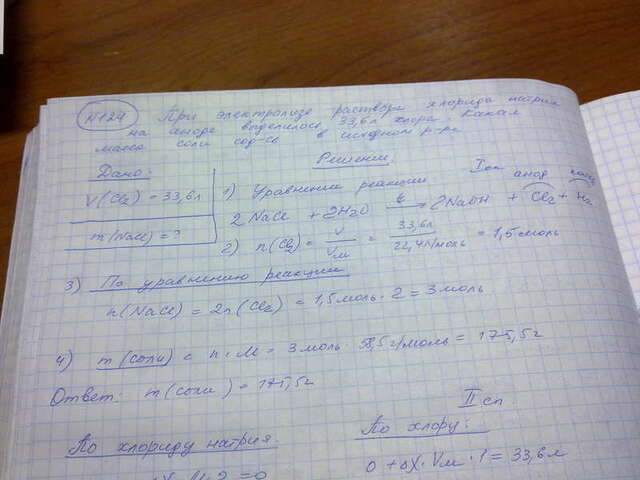 №124 При электролизе раствора хлорида натрия
на аноде выделилось 33,6 л хлора. Какая
масса соли сод-сь в исходном р-ре
Дано:
V(Cl2) = 33,6л
m(NaCl) = ?
Решение
I сп
1) Уравнение реакции
анод катод
2NaCl + 2H2O → 2NaOH + Cl2 + H2
2) n(Cl2) = V/Vм = 33,6л/22,4л/моль = 1,5моль
3) По уравнению реакции
n(NaCl) = 2n(Cl2) = 1,5моль · 2 = 3моль
4) m(соли) = n · M = 3моль · 58,5г/моль = 175,5г
Ответ: m(соли) = 175,5г
II сп
По хлориду натрия
По хлору:
0 + ΔX · Vм · 1 = 33,6л